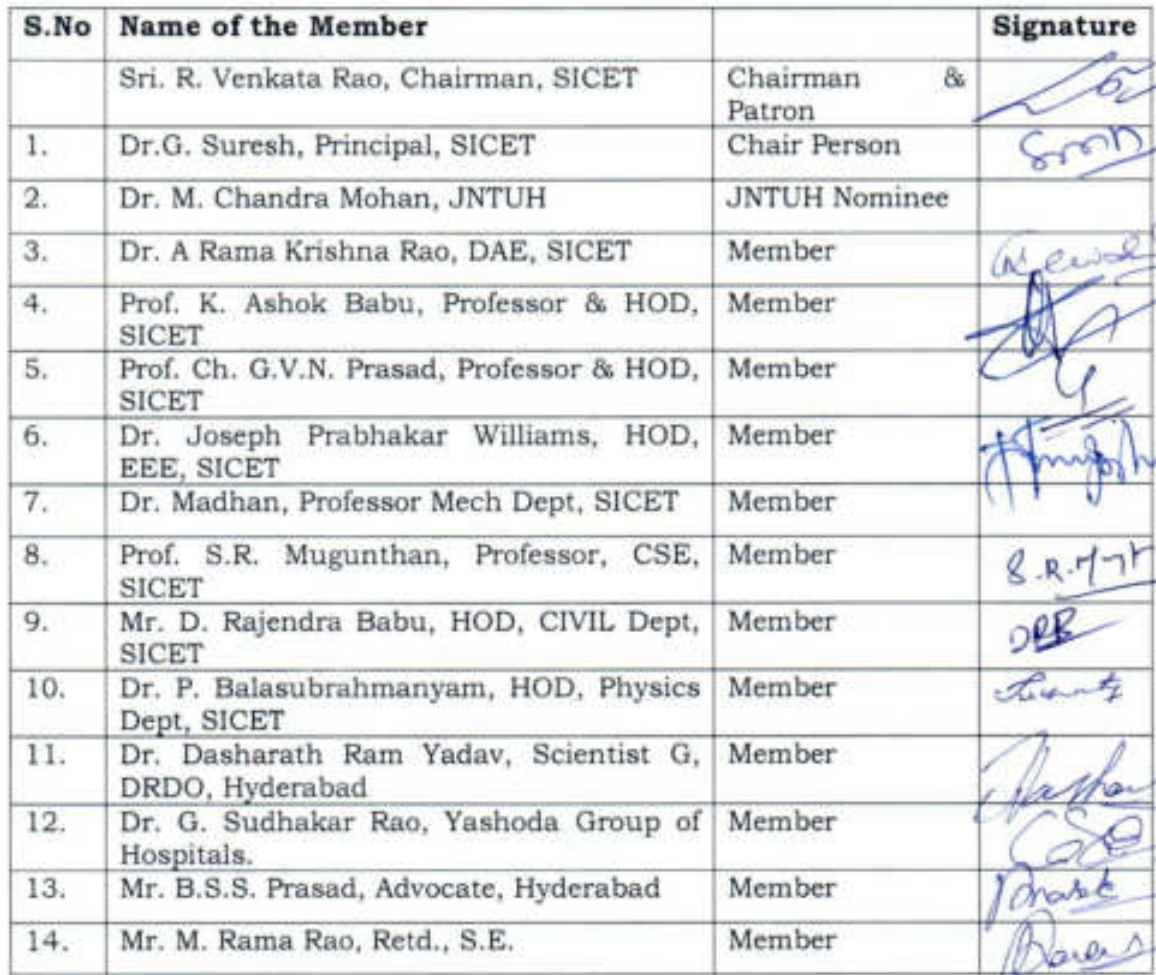 S.No Name of the Member Signature
Sri. R. Venkata Rao, Chairman, SICET Chairman &
Patron
1. Dr.G. Suresh, Principal, SICET Chair Person
2. Dr. M. Chandra Mohan, JNTUH JNTUH Nominee
3. Dr. A Rama Krishna Rao, DAE, SICET Member
4. Prof. K. Ashok Babu, Professor & HOD, Member
SICET
5. Prof. Ch. G.V.N. Prasad, Professor & HOD, Member
SICET
6. Dr. Joseph Prabhakar Williams, HOD, Member
EEE, SICET
7. Dr. Madhan, Professor Mech Dept, SICET Member
8. Prof. S.R. Mugunthan, Professor, CSE, Member
SICET
9. Mr. D. Rajendra Babu, HOD, CIVIL Dept, Member
SICET
10. Dr. P. Balasubrahmanyam, HOD, Physics Member
Dept, SICET
11. Dr. Dasharath Ram Yadav, Scientist G, Member
DRDO, Hyderabad
12. Dr. G. Sudhakar Rao, Yashoda Group of Member
Hospitals.
13. Mr. B.S.S. Prasad, Advocate, Hyderabad Member
14. Mr. M. Rama Rao, Retd., S.E. Member